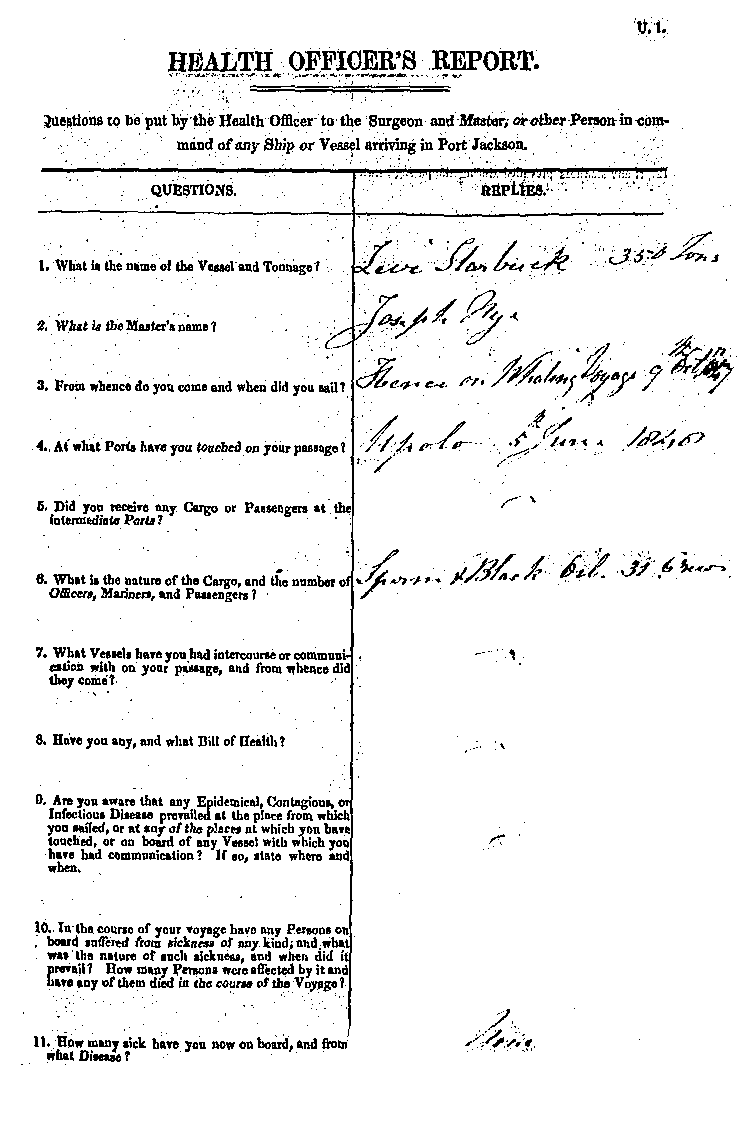 U. 1.
HEALTH OFFICER'S REPORT.
Questions to be put by the Health Officer to the Surgeon and Master, or other Person in com-
mand of any Ship or Vessel arriving in Port Jackson.
QUESTIONS. REPLIES.
1. What is the name of the Vessel and Tonnage? Levi Starbuck 350 Tons
2. What is the Master's name? Joseph Nye
3. From whence do you come and when did you sail? Hence on Whaling Voyage 9th
4. At what Ports have you touched on your passage? Upolo 5th June 1840
5. Did you receive any Cargo or Passengers at the
intermediate Ports?
6. What is the nature of the Cargo, and the number of Sperm & Black Oil. 31 Crew
Officers, Mariners, and Passengers?
7. What Vessels have you had intercourse or communi-
cation with on your passage, and from whence did
they come?
8. Have you any, and what Bill of Health?
9. Are you aware that any Epidemical, Contagious, or
Infectious Disease prevailed at the place from which
you sailed, or at any of the places at which you have
touched, or on board of any Vessel with which you
have had communication? If so, state where and
when.
10. In the course of your voyage have any Persons on
board suffered from sickness of any kind; and what
was the nature of such sickness, and when did it
prevail? How many Persons were affected by it and
have any of them died in the course of the Voyage?
11. How many sick have you now on board, and from None
what Disease?